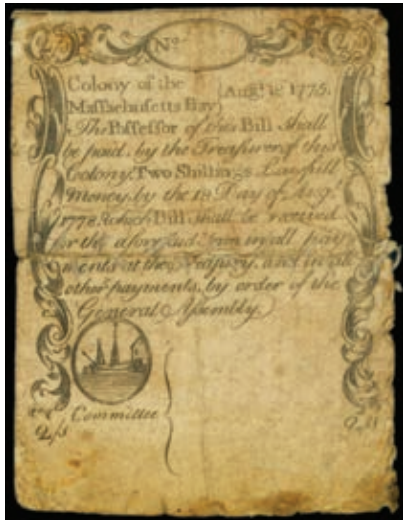 No.
Colony of the
Massachusetts Bay } Augt. 18: 1775.
The Possessor of this Bill shall
be paid, by the Treasurer of this
Colony, Two Shillings Lawfull
Money, by the 18 Day of Aug.
1778, which Bill shall be received
for the aforesaid sum in all pay
ments at the Treasury, and in all
other payments, by order of the
General Assembly.
Committee {
2/s 2/s